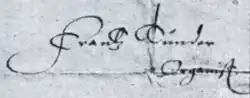 Frantz Tunder
Organist